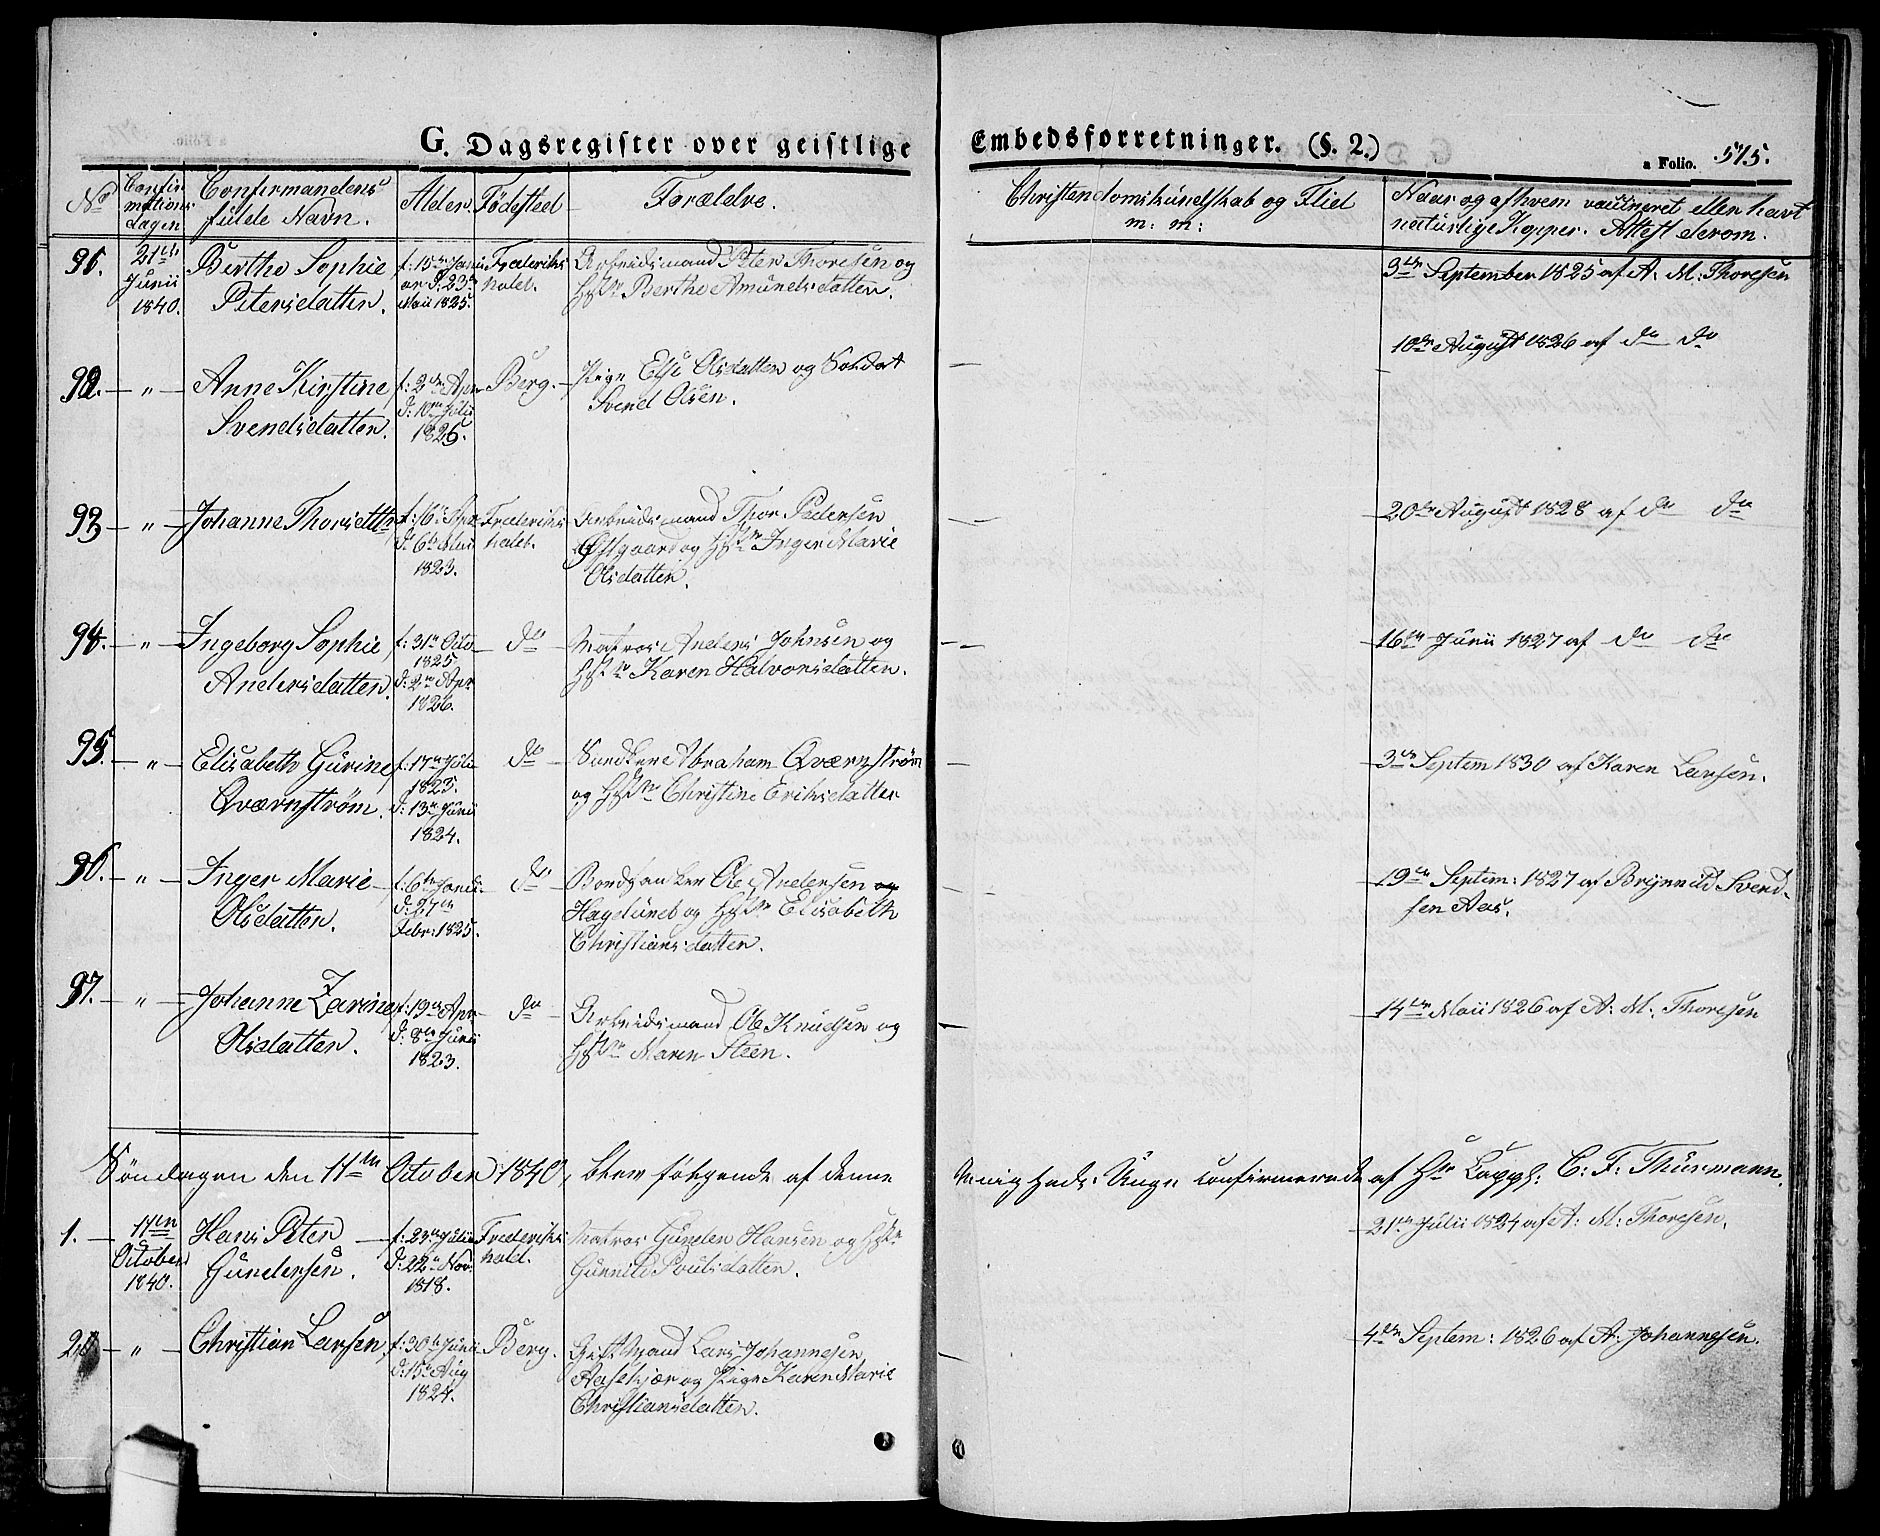 G. Dagsregister over geistlige Embedsforretninger. (§. 2.)
a Folio. 575.
No
Confir
mations
dagen
Confirmandens
fulde Navn.
Alder.
Fødested
Forældre.
Christendomskundskab og Flid
m: m:
Naar og af hvem vaccineret eller havt
naturlige Kopper. Attest derom.
91.
21de
Junii
1840.
Berthe Sophie
Petersdatter.
f: 15de Janu
ar d: 23de
Maii 1825.
Frederiks
hald.
Arbeidsmand Peter Thoresen og
Hstr Berthe Amundsdatter.
3de September 1825 af A. M. Thoresen
92. — " —
Anne Kirstine
Svendsdatter.
f: 2den Apr
d: 10de Julii
1825.
Berg.
Pige Else Olsdatter og Soldat
Svend Olsen.
10de August 1826 af do do
93 — " —
Johanne Thorsdttr
f: 16de Apr
d: 6te Maii
1823.
Frederiks
hald.
Arbeidsmand Thor Pedersen
Østgaard og Hstr Inger Marie
Olsdatter.
20de August 1828 af do do
94. — " —
Ingeborg Sophie
Andersdatter.
f: 31te Octo
1825
d: 2den Apr
1826.
do
Matros Anders Johnsen og
Hstr Karen Halvorsdatter.
16de Junii 1827 af do do
95. — " —
Elisabeth Gurine
Qværnstrøm.
f: 17de Julii
1823.
d: 13de Junii
1824.
do
Snedker Abraham Qværnstrøm
og Hstr Christine Eriksdatter
3de Septem 1830 af Karen Larsen.
96. — " —
Inger Marie
Olsdatter.
f: 6te Janu:
d: 27de
Febr: 1825.
do
Bordsanker Ole Andersen og
Haglund og Hstr Elisabeth
Christiansdatter.
19de Septem: 1827 af Brynnild Svend-
sen Aas.
97. — " —
Johanne Zarine
Olsdatter.
f: 19de Apr
d: 8de Junii
1823.
do
Arbeidsmand Ole Knudsen og
Hstr Maren Steen.
14de Maii 1826 af A: M. Thoresen
Søndagen den 11te October 1840, blev følgende af denne Menigheds Unge confirmerede af Hr Capp: C: F: Thurmann.
1. —
11te
October
1840.
Hans Peter
Gundersen.
f: 23de Julii
d: 22de Nov:
1818.
Frederiks
hald.
Matros Gunder Hansen og Hstr
Gunnild Poulsdatter.
21de Julii 1824 af A: M: Thoresen.
2. — " —
Christian Larsen
f: 30te Junii
d: 15de Aug
1824.
Berg.
Gift Mand Lars Johannesen
Aasekjær og Pige Karen Marie
Christiansdatter.
4de Septem: 1826 af A. Johannesen.